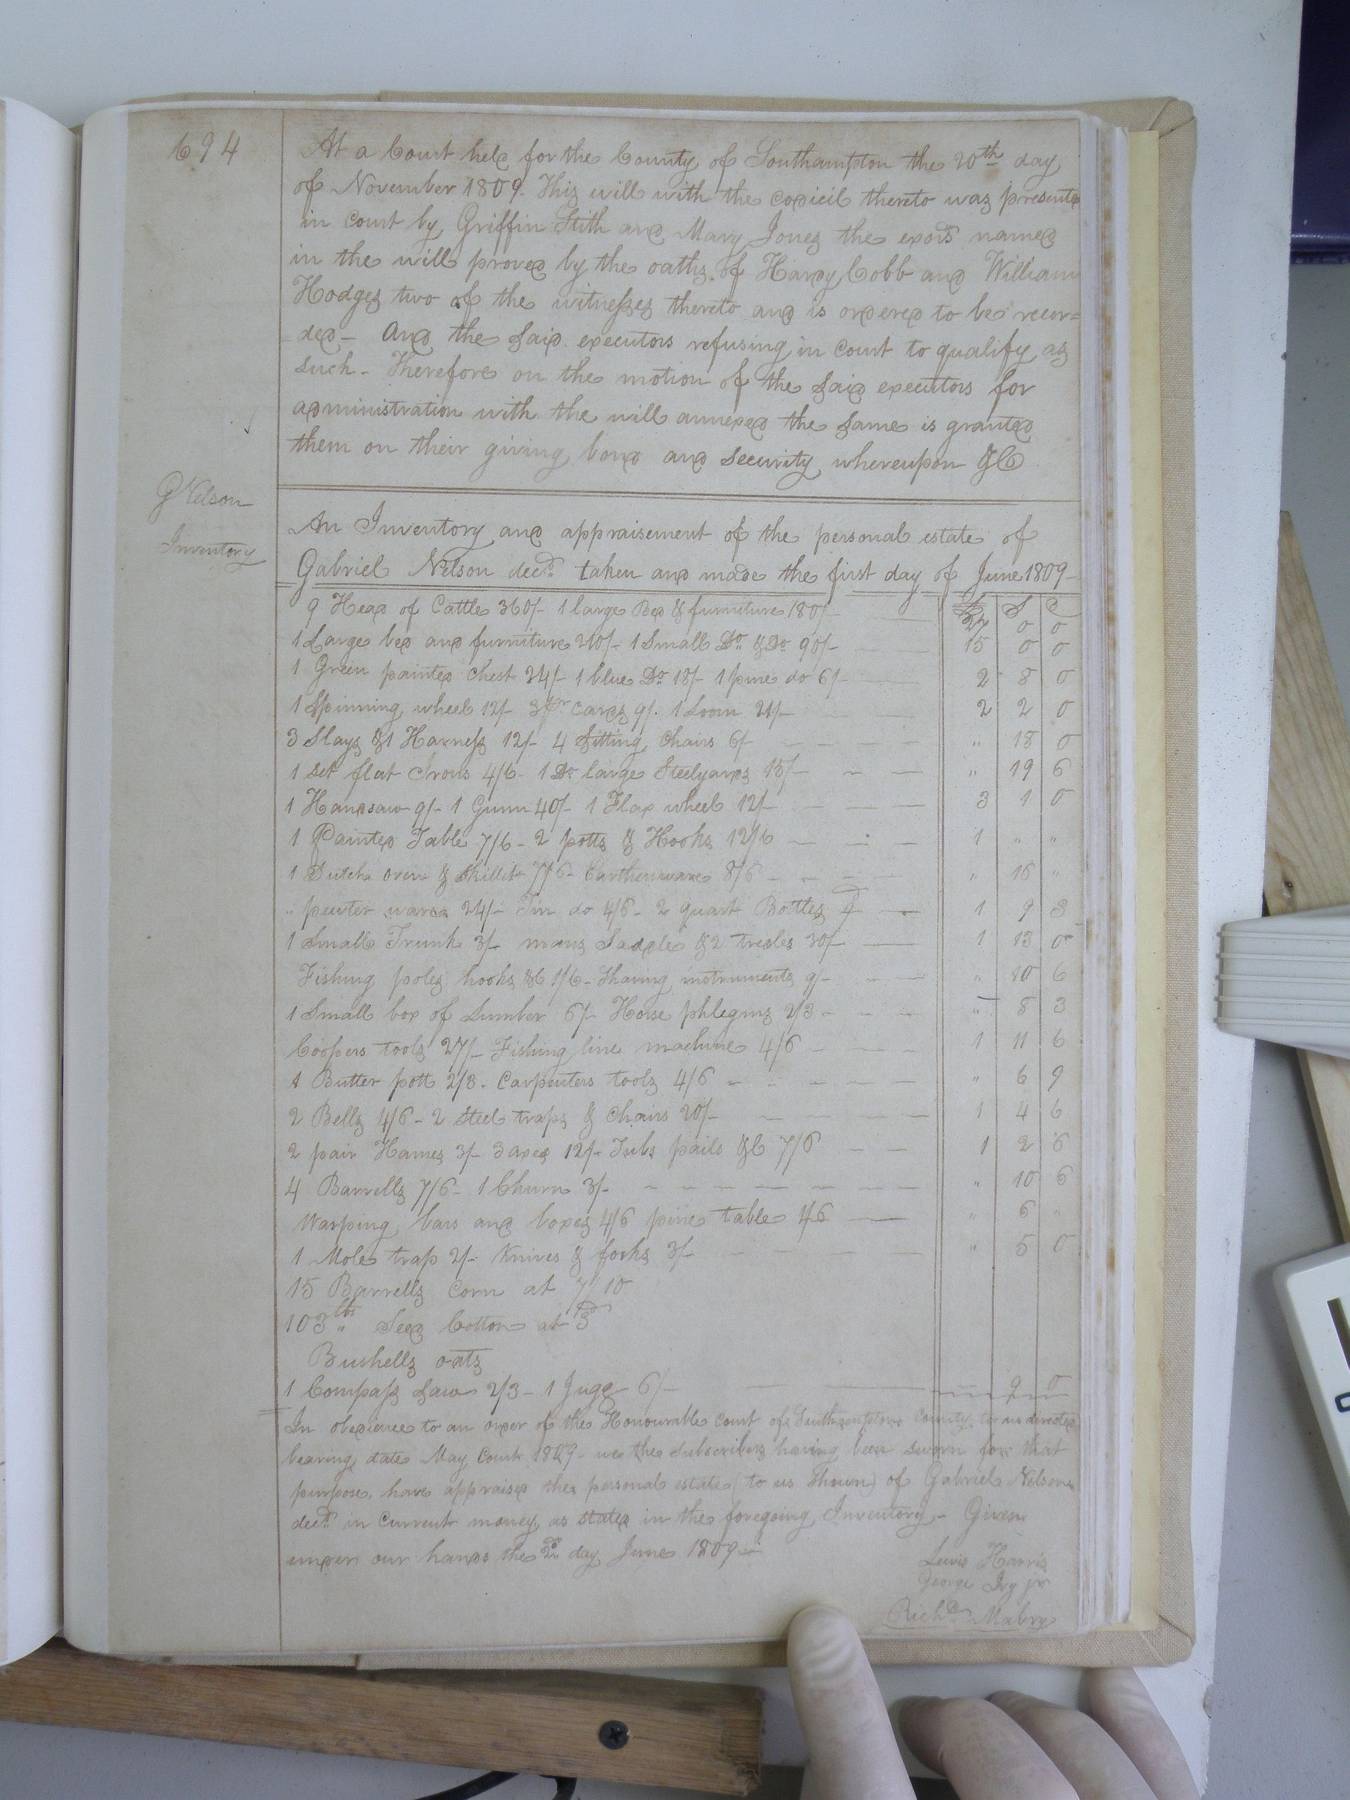 694
At a Court held for the County of Southampton the 20th day
of November 1809. This will with the codicil thereto was presented
in court by Griffin Stith and Mary Jones the exors named
in the will proved by the oaths of Hardy Cobb and William
Hodges two of the witnesses thereto and is ordered to be recor=
ded - And the said executors refusing in court to qualify as
such - Therefore on the motion of the said executors for
administration with the will annexed the same is granted
them on their giving bond and security whereupon &C
G Nelson
Inventory
An Inventory and appraisement of the personal estate of
Gabriel Nelson decd. taken and made the first day of June 1809
9 Head of Cattle 360/- 1 large Bed & furniture 180/- 27 0 0
1 Large bed and furniture 210/- 1 Small Do & Do 90/- 15 0 0
1 Green painted Chest 24/- 1 blue Do 18/- 1 pine do 6/- 2 8 0
1 Spinning wheel 12/- 3 pr cards 9/. 1 Loom 21/- 2 2 0
3 Slays & 1 Harness 12/- 4 Sitting Chairs 6/- " 18 0
1 Set flat Irons 4/6 - 1 Do large Steelyards 15/- " 19 6
1 Handsaw 9/- 1 Gunn 40/- 1 Flax wheel 12/- 3 1 0
1 Painted Table 7/6 - 2 potts & Hooks 12/6 1 " "
1 Dutch oven & Skillet 7/6 - Earthenware 8/6 " 16 "
" pewter ware 24/- Tin do 4/6 - 2 quart Bottles 9d 1 9 3
1 Small Trunk 3/- mans Saddle & 2 tresles 30/- 1 13 0
Fishing poles hooks &C 1/6 - Shaving instruments 9/- " 10 6
1 Small box of Lumber 6/- Horse phlegms 2/3 - " 8 3
Coopers tools 27/- Fishing line machine 4/6 1 11 6
1 Butter pott 2/3 - Carpenters tools 4/6 " 6 9
2 Bells 4/6 - 2 Steel traps & Chairs 20/- 1 4 6
2 pair Hames 3/- 3 axes 12/- Tubs pails &C 7/6 1 2 6
4 Barrells 7/6 - 1 Churn 3/- " 10 6
Warping bars and boxes 4/6 pine table 1/6 " 6 "
1 Mole trap 2/- Knives & forks 3/- " 5 0
15 Barrells Corn at 7/10
103 lbs Seed Cotton at 3d
Bushells oats
1 Compass Saw 2/3 - 1 Jugg 6/- 9 0
In obedience to an order of the Honourable Court of Southampton County to us directed
bearing date May Court 1809 - we the subscribers having been sworn for that
purpose, have appraised the personal estate (to us shown) of Gabriel Nelson
decd. in current money as stated in the foregoing Inventory - Given
under our hands the 2d day June 1809
Lewis Harris
George Ivy jr
Richd. Mabry